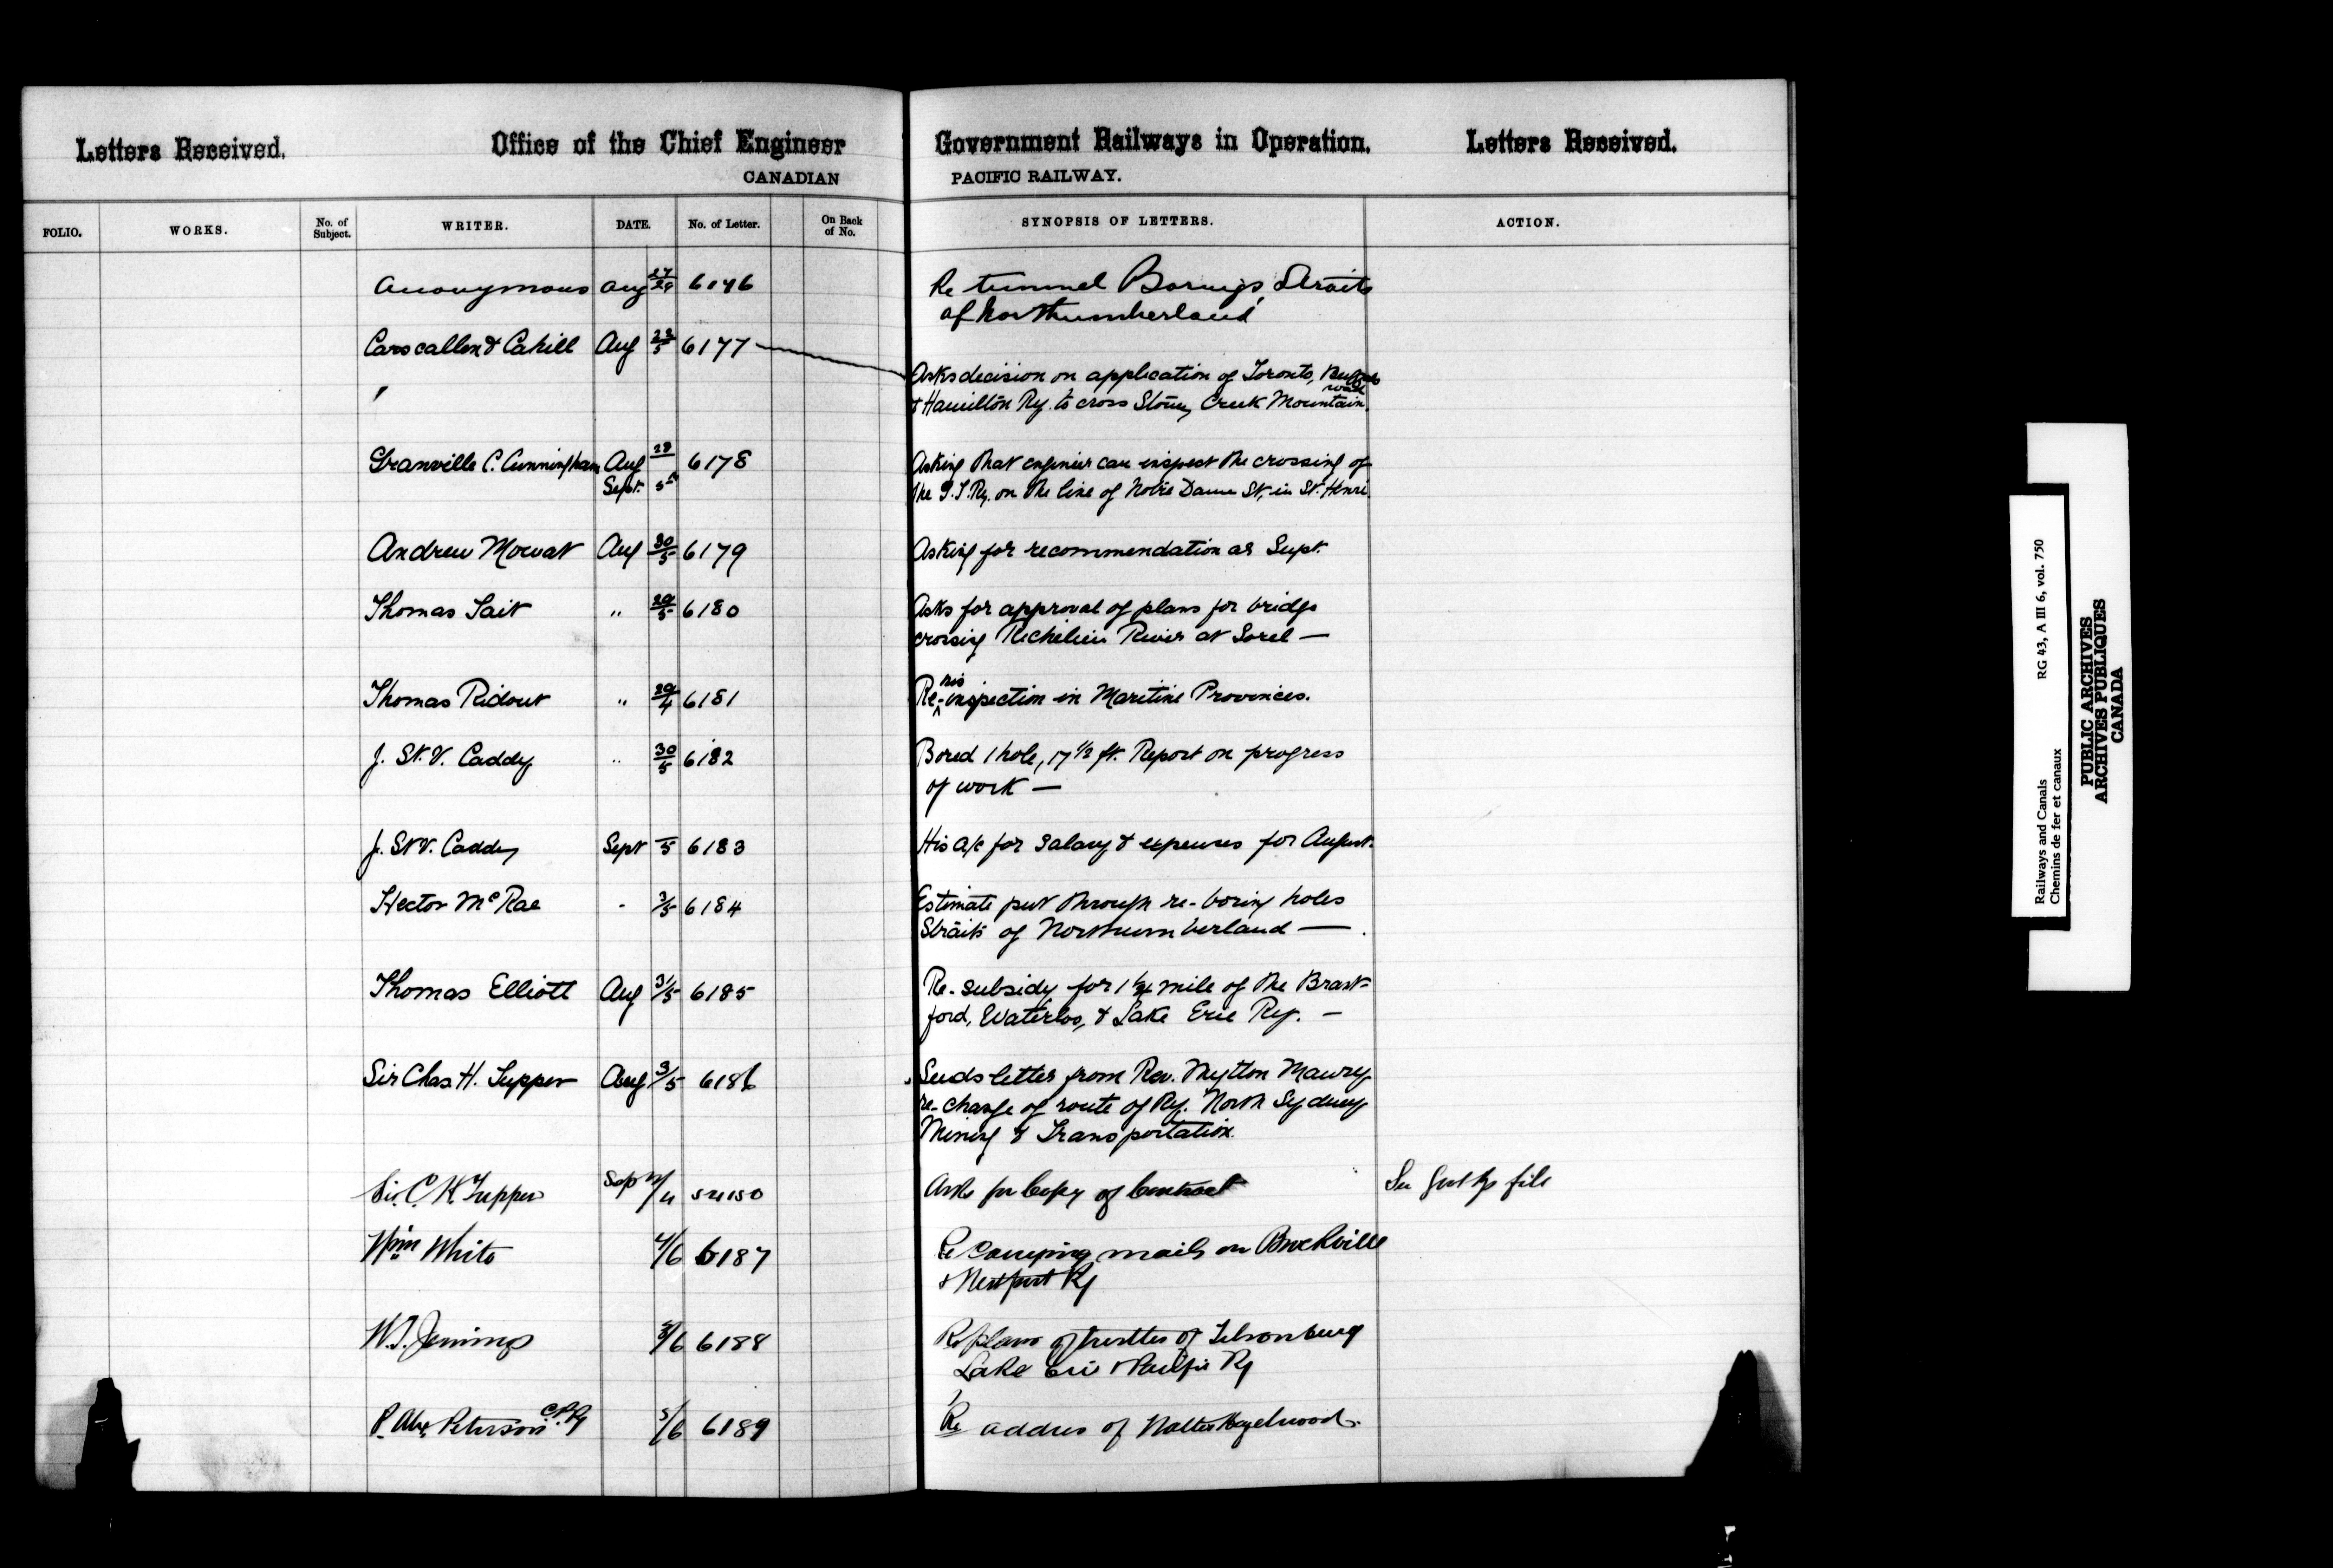 Letters Received. Office of the Chief Engineer Government Railways in Operation. Letters Received.
CANADIAN PACIFIC RAILWAY.
FOLIO. WORKS. No. of Subject. WRITER. DATE. No. of Letter. On Back of No. SYNOPSIS OF LETTERS. ACTION.
Anonymous Aug 27/29 6146 Re tunnel Borings, Straits
of Northumberland
Carscallen & Cahill Aug 28/5 6177
Asks decision on application of Toronto, Buffalo
& Hamilton Ry. to cross Stoney Creek Mountain road
Granville C. Cunningham Aug 28 6178 Asking that engineer can inspect the crossing of
Sept. 5 the G.T.Ry. on the line of Notre Dame St, in St. Henri
Andrew Mowat Aug 30/5 6179 Asking for recommendation as Supt.
Thomas Tait " 29/5 6180 Asks for approval of plans for bridge
crossing Richelieu River at Sorel —
Thomas Ridout " 29/4 6181 Re- his inspection in Maritine Provinces.
J. St. V. Caddy " 30/5 6182 Bored 1 hole, 17 1/2 ft. Report on progress
of work —
J. St V. Caddy Sept 5 6183 His a/c for salary & expenses for August.
Hector McRae " 3/5 6184 Estimate put through re-boring holes
Straits of Northumberland —
Thomas Elliott Aug 31/5 6185 Re- subsidy for 1 1/4 mile of the Brant-
ford, Waterloo, & Lake Erie Ry. —
Sir Chas. H. Tupper Aug 31/5 6186 Sends letter from Rev. Mytton Maury
re- change of route of Ry. North Sydney
Mining & Transportation.
Sir C. H. Tupper Sep /4 54150 Asks for Copy of Contract See file
Wm White 4/6 6187 Re Carrying mails on Brockville
& Westport Ry
W.T. Jennings 5/6 6188 Re plans of trestles of Tilsonburg
Lake Erie & Pacific Ry
P. Alex. Peterson C.P.Ry 5/6 6189 Re address of Walter Hazelwood.
Railways and Canals RG 43, A III 6, vol. 750
Chemins de fer et canaux
PUBLIC ARCHIVES
ARCHIVES PUBLIQUES
CANADA